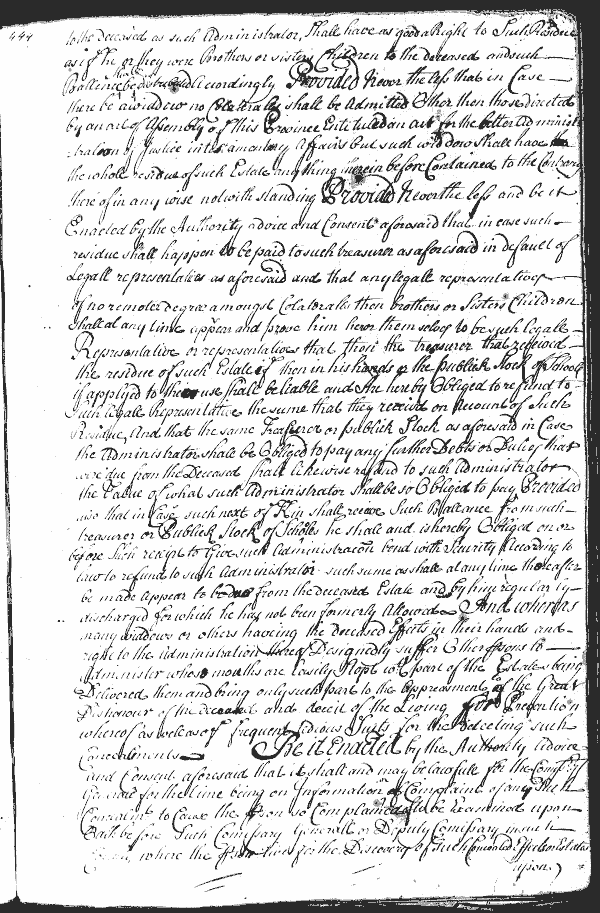 444
to the deceased as such Administrator, Shall have as good a Right to Such Residue
as if he or they were Brothers or sisters Children to the deceased and such
Ballance be distributed Accordingly Provided Never the less that in Case
there be a widdow no Colatralls shall be Admitted Other then those directed
by an act of Assembly of this Province Entituled an act for the better Administ
tration of Justice in testamentary Affairs but such widdow shall have the
the whole residue of such Estate any thing herein before Contained to the Contrary
thereof in any wise notwithstanding Provided Never the less and be it
Enacted by the Authority advice and Consent aforesaid that in case such
residue shall happen to be paid to such treasurer as aforesaid in default of
Legall representatives as aforesaid and that any legall representatives
of no remoter degree amongst Colateralls then brothers or Sisters Children
Shall at any time appear and prove him her or them selves to be such legall
Representative or representatives that then the treasurer that received
the residue of such Estate if then in his hands or the publick Stock of Schools
if applyed to the use shall be liable and are hereby Obliged to refund to
Such legall Representative the same that they received on account of Such
Residue, And that the same Treasurer or publick Stock as aforesaid in Case
the Administrator shall be Obliged to pay any further Debts or Duties that
were due from the Deceased shall likewise refund to such Administrator
the Value of what such Administrator shall be so Obliged to pay Provided
also that in Case such next of Kin shall receive Such Ballance from such
treasurer or Publick Stock of Schools he shall and is hereby Obliged on or
before Such receipt to Give such Administracon bond with Security According to
Law to refund to such Administrator such sume as shall at any time thereafter
be made appear to be due from the deceased Estate and by him regularly
discharged for which he has not been formerly Allowed And whereas
many widdows or others haveing the deceased Effects in their hands and
right to the Administration thereof Designedly suffer Other psons to
Administer whose mouths are Easily Stopt with part of the Estate being
Delivered them and being only such part to the appraisment of the Great
Dishonour of the deceased and deceit of the Living for Prevention
whereof as well as of frequent tedious Suits for the detecting such
Concealments Be it Enacted by the Authority Advice
and Consent aforesaid that it shall and may be lawfull for the Comissry
Generall for the time being on Information or Complaint of any Such
Concealment to Cause the pson so Complained of to be Examined upon
Oath before Such Comissary Generall or Deputy Comissary in such
where the pson for the Discovery of Such Concealed Effects or Estates
upon